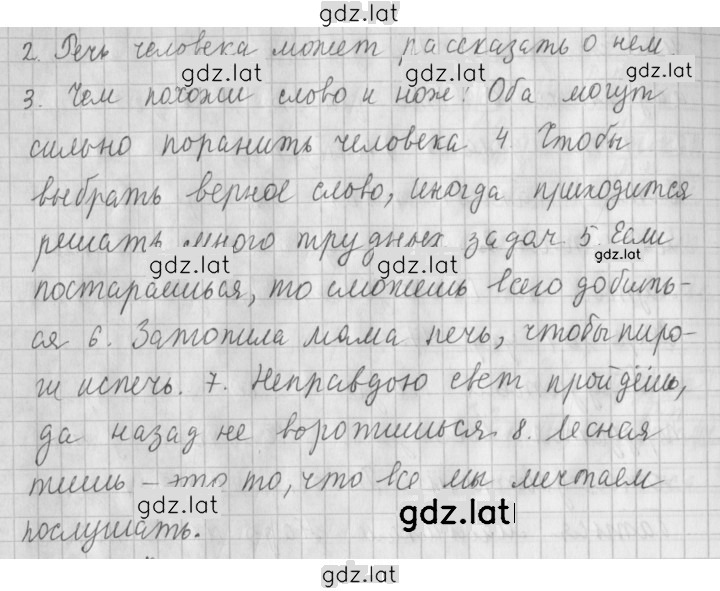 gdz.lat
2. Речь человека может рассказать о нем
gdz.lat gdz.lat
3. Чем похожи слово и нож? Оба могут
сильно поранить человека 4 Чтобы
выбрать верное слово, иногда приходится
решать много трудных задач 5. Если
gdz.lat gdz.lat gdz.lat
постараешься, то сможешь всего добить-
ся 6. Затопила мама печь, чтобы пиро-
ги испечь. 7. Неправдою свет пройдёшь,
да назад не воротишься. 8. Лесная
тишь – это то, что все мы мечтаем
gdz.lat gdz.lat
послушать.
gdz.lat